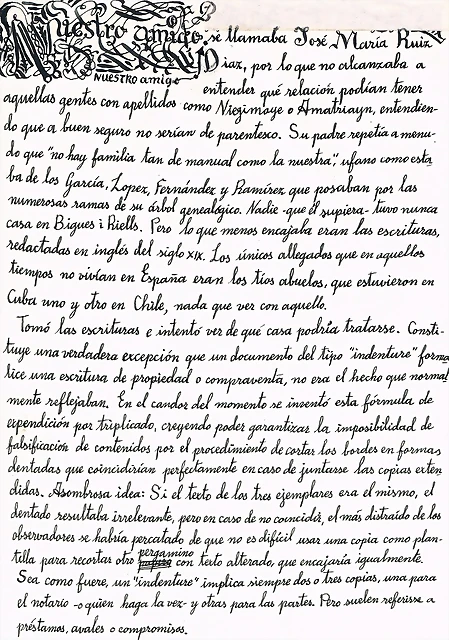 Nuestro amigo, se llamaba José María Ruiz
NUESTRO amigo
Díaz, por lo que no alcanzaba a
entender qué relación podían tener
aquellas gentes con apellidos como Niezimoye o Amatriayn, entendien-
do que a buen seguro no serían de parentesco. Su padre repetía a menu-
do que "no hay familia tan de manual como la nuestra", ufano como esta
ba de los García, Lopez, Fernández y Ramírez, que posaban por las
numerosas ramas de su árbol genealógico. Nadie -que él supiera- tuvo nunca
casa en Bigues i Riells. Pero lo que menos encajaba eran las escrituras,
redactadas en inglés del siglo XIX. Los únicos allegados que en aquellos
tiempos no vivían en España eran los tíos abuelos, que estuvieron en
Cuba uno y otro en Chile, nada que ver con aquello.
Tomó las escrituras e intentó ver de qué casa podría tratarse. Consti-
tuye una verdadera excepción que un documento del tipo "indenture" forma
lice una escritura de propiedad o compraventa, no era el hecho que normal
mente reflejaban. En el candor del momento se inventó esta fórmula de
expendición por triplicado, creyendo poder garantizar la imposibilidad de
falsificación de contenidos por el procedimiento de cortar los bordes en formas
dentadas que coincidirían perfectamente en caso de juntarse las copias exten
didas. Asombrosa idea: Si el texto de los tres ejemplares era el mismo, el
dentado resultaba irrelevante, pero en caso de no coincidir, el más distraído de los
observadores se habría percatado de que no es difícil usar una copia como plan-
tilla para recortar otro pergamino con texto alterado, que encajaría igualmente.
Sea como fuere, un "indenture" implica siempre dos o tres copias, una para
el notario -o quien haga la vez- y otras para las partes. Pero suelen referirse a
préstamos, avales o compromisos.